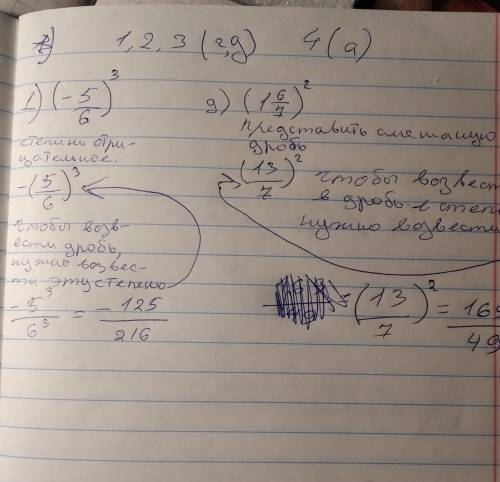 1, 2, 3 (г, д) 4 (а)
1) (-5/6)^3
степень отри-
цательное.
-(5/6)^3
чтобы возв-
ести дробь,
нужно возвес-
ти эту степень
-5^3/6^3 = -125/216
д) (1 6/7)^2
представить смешаную
дробь
(13/7)^2
чтобы возвест
в дробь в степе
нужно возвести
= (13/7)^2 = 169/49